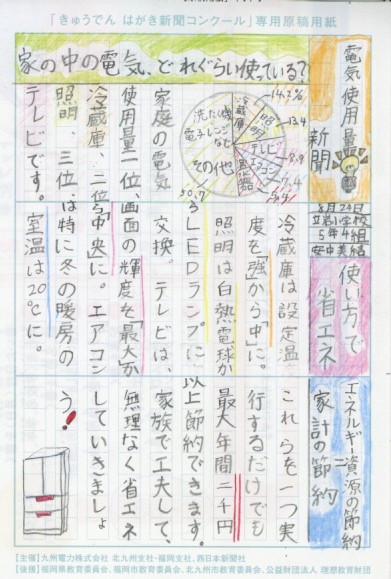 「きゅうでん はがき新聞コンクール」専用原稿用紙
電気使用量
新聞
8月24日
立岩小学校
5年4組
家の中の電気、どれぐらい使っている?
冷蔵庫
14.2%
照明
13.4
テレビ
8.9
エアコン
7.4
洗たく機
電子レンジなど
その他
50.7
家庭の電気
使用量一位、
冷蔵庫、二位
照明、三位、
テレビです。
使い方で
省エネ
冷蔵庫は設定温
度を「強」から「中」に。
照明は白熱電球か
らLEDランプに
交換。テレビは、
画面の輝度を「最大」か
ら「中央」に。エアコン
は特に冬の暖房の
室温は20℃に。
エネルギー資源の節約
=
家計の節約
これらを一つ実
行するだけでも
最大年間二千円
以上節約できます。
家族で工夫して、
無理なく省エネ
していきましょ
う!
【主催】九州電力株式会社 北九州支社・福岡支社、西日本新聞社
【後援】福岡県教育委員会、福岡市教育委員会、北九州市教育委員会、公益財団法人 理想教育財団